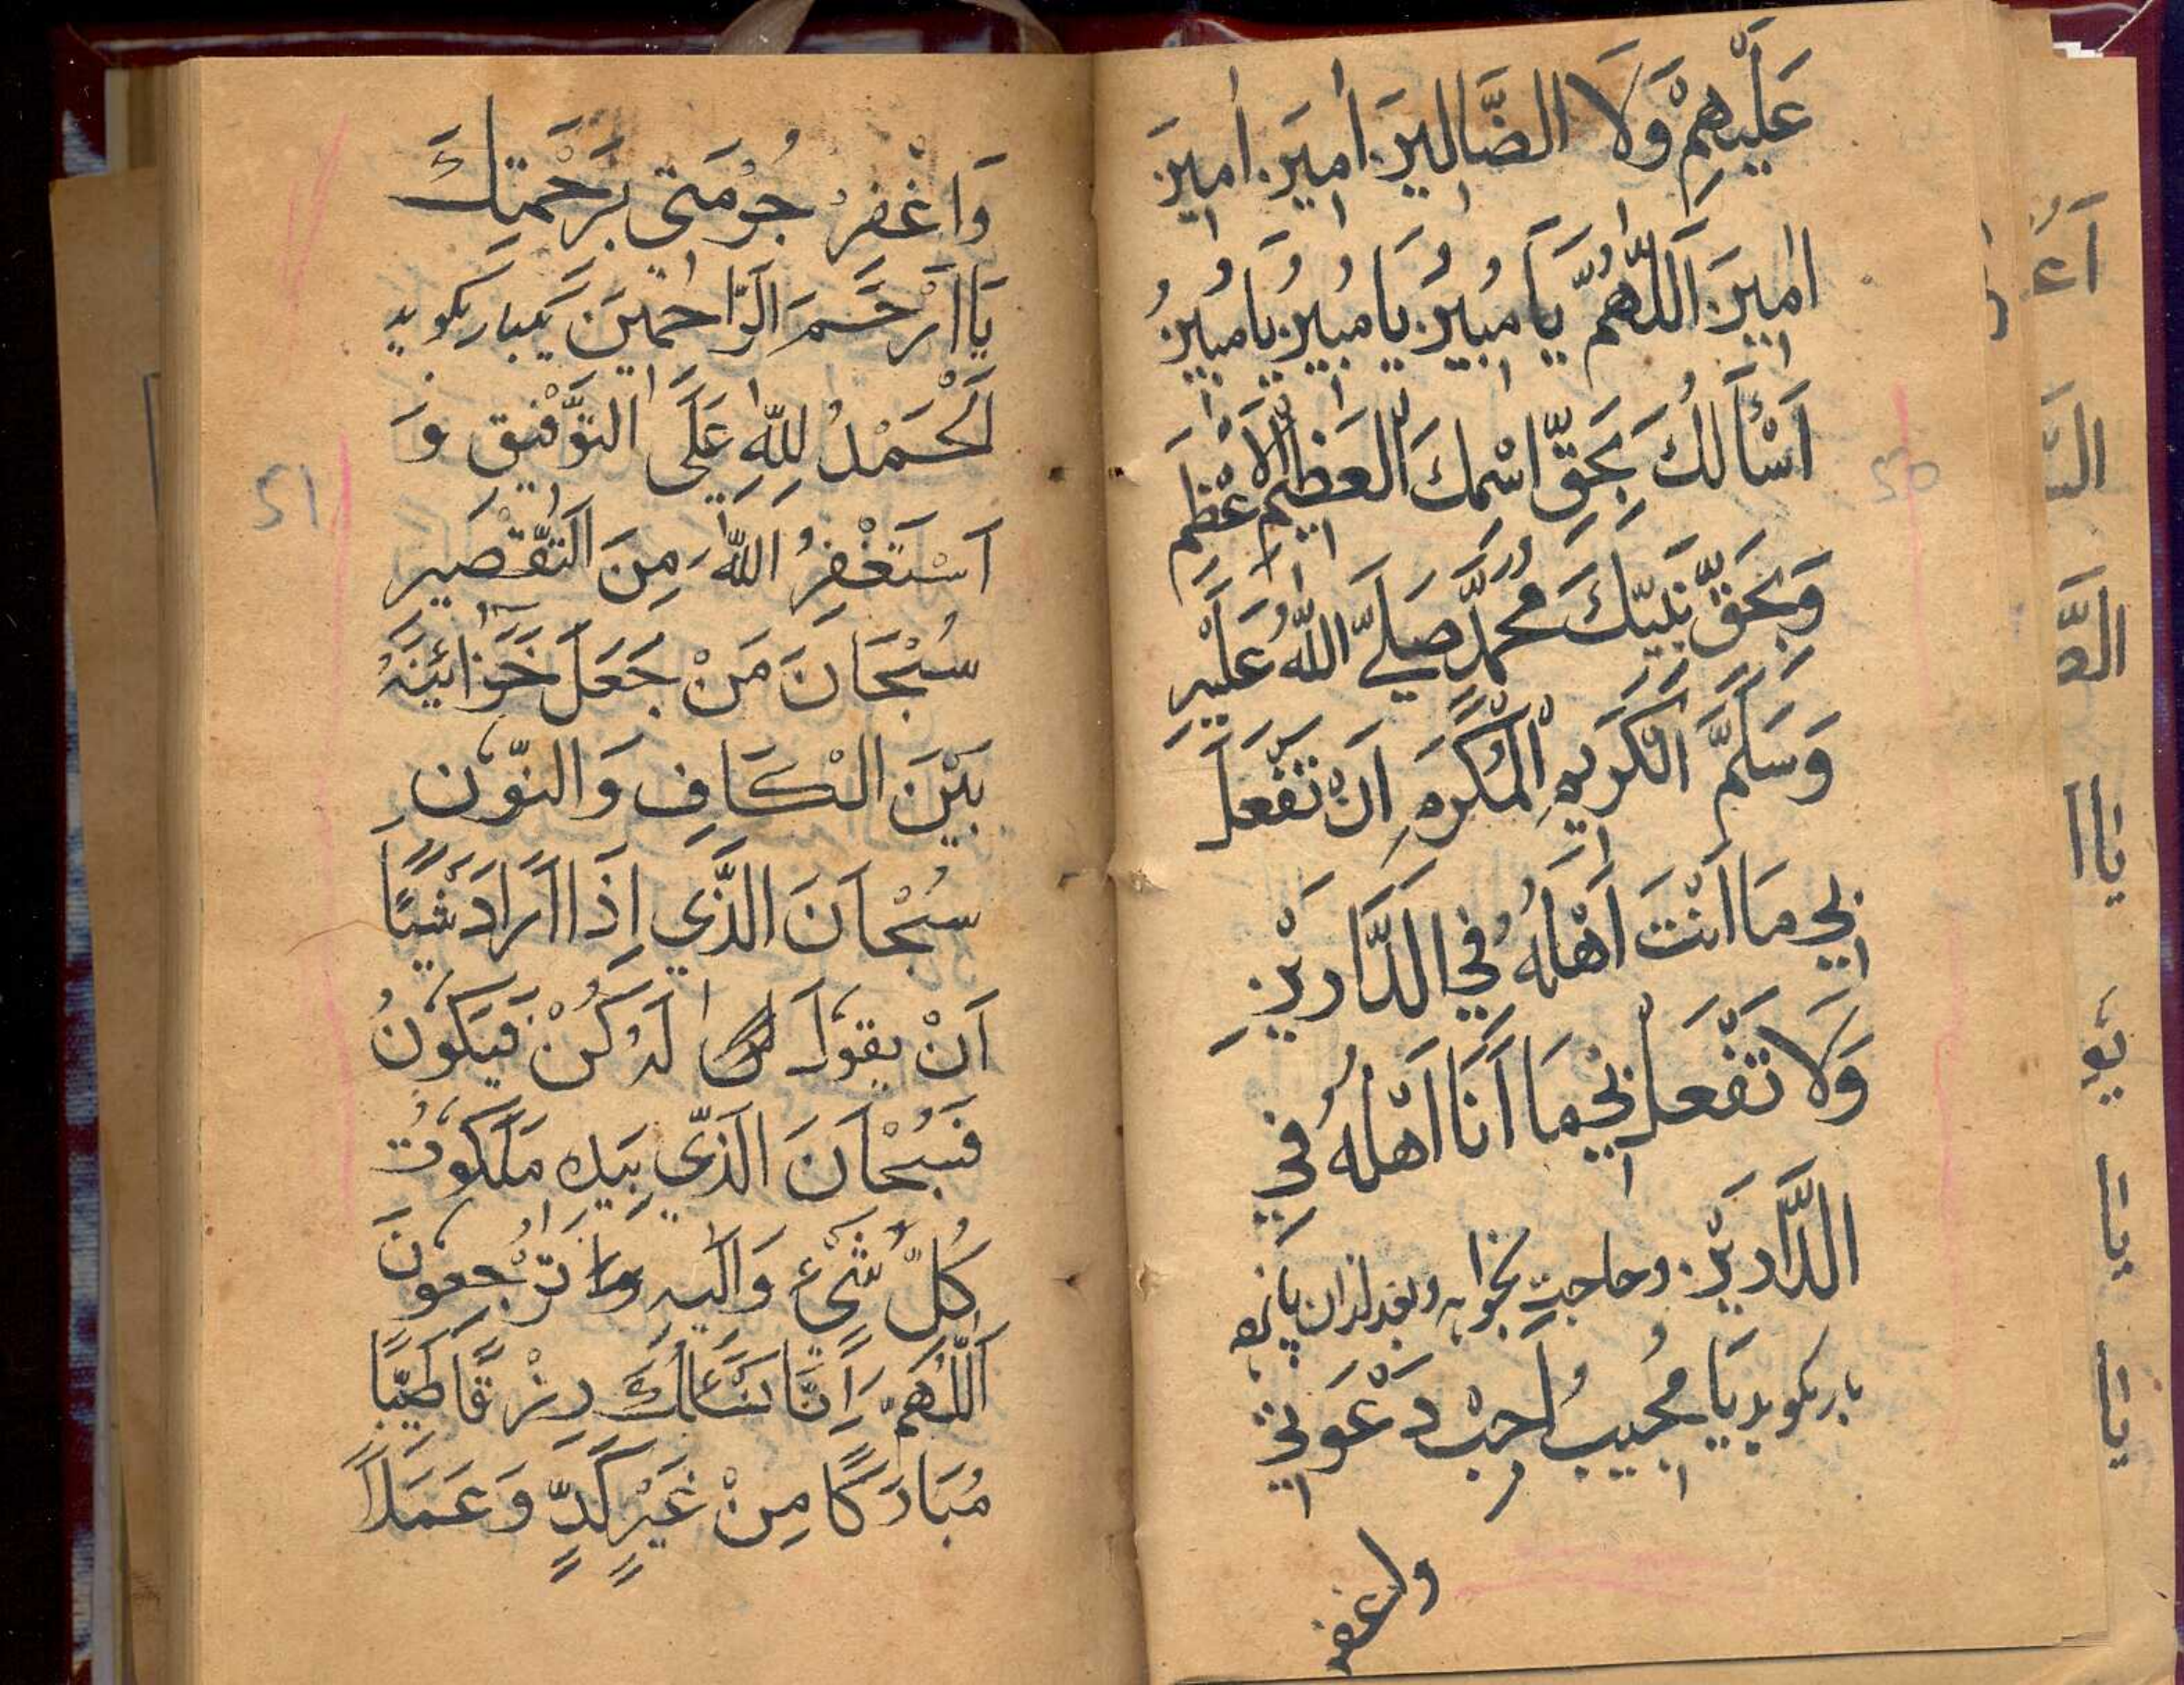 عَلَيْهِمْ وَلَا الضَّالِينَ امِينَ امِينَ
امِينَ اَللّٰهُمَّ يَا مُبِينُ يَا مُبِينُ يَا مُبِينُ
اَسْأَلُكَ بِحَقِّ اسْمِكَ الْعَظِيمِ الْاَعْظَمِ
وَبِحَقِّ نَبِيِّكَ مُحَمَّدٍ صَلَّى اللّٰهُ عَلَيْهِ
وَسَلَّمَ الْكَرِيمِ الْمُكَرَّمِ اَنْ تَفْعَلَ
بِي مَا اَنْتَ اَهْلُهُ فِي الدَّارَيْنِ
وَلَا تَفْعَلْ بِي مَا اَنَا اَهْلُهُ فِي
الدَّارَيْنِ وحاجت بخواهد وبعد ازان پانزده
بار بكويد يَا مُجِيبُ اَجِبْ دَعْوَتِي
واغفر
50
وَاغْفِرْ جُرْمَتِي بِرَحْمَتِكَ
يَا اَرْحَمَ الرَّاحِمِينَ يكبار بكويد
اَلْحَمْدُ لِلّٰهِ عَلَى التَّوْفِيقِ وَ
اَسْتَغْفِرُ اللّٰهَ مِنَ التَّقْصِيرِ
سُبْحَانَ مَنْ جَعَلَ خَزَائِنَهُ
بَيْنَ الْكَافِ وَالنُّونِ
سُبْحَانَ الَّذِي اِذَا اَرَادَ شَيْئًا
اَنْ يَقُولَ لَهُ كُنْ فَيَكُونُ
فَسُبْحَانَ الَّذِي بِيَدِهِ مَلَكُوتُ
كُلِّ شَيْءٍ وَاِلَيْهِ تُرْجَعُونَ
اَللّٰهُمَّ اِنَّا نَسْئَلُكَ رِزْقًا طَيِّبًا
مُبَارَكًا مِنْ غَيْرِ كَدٍّ وَعَمَلًا
51